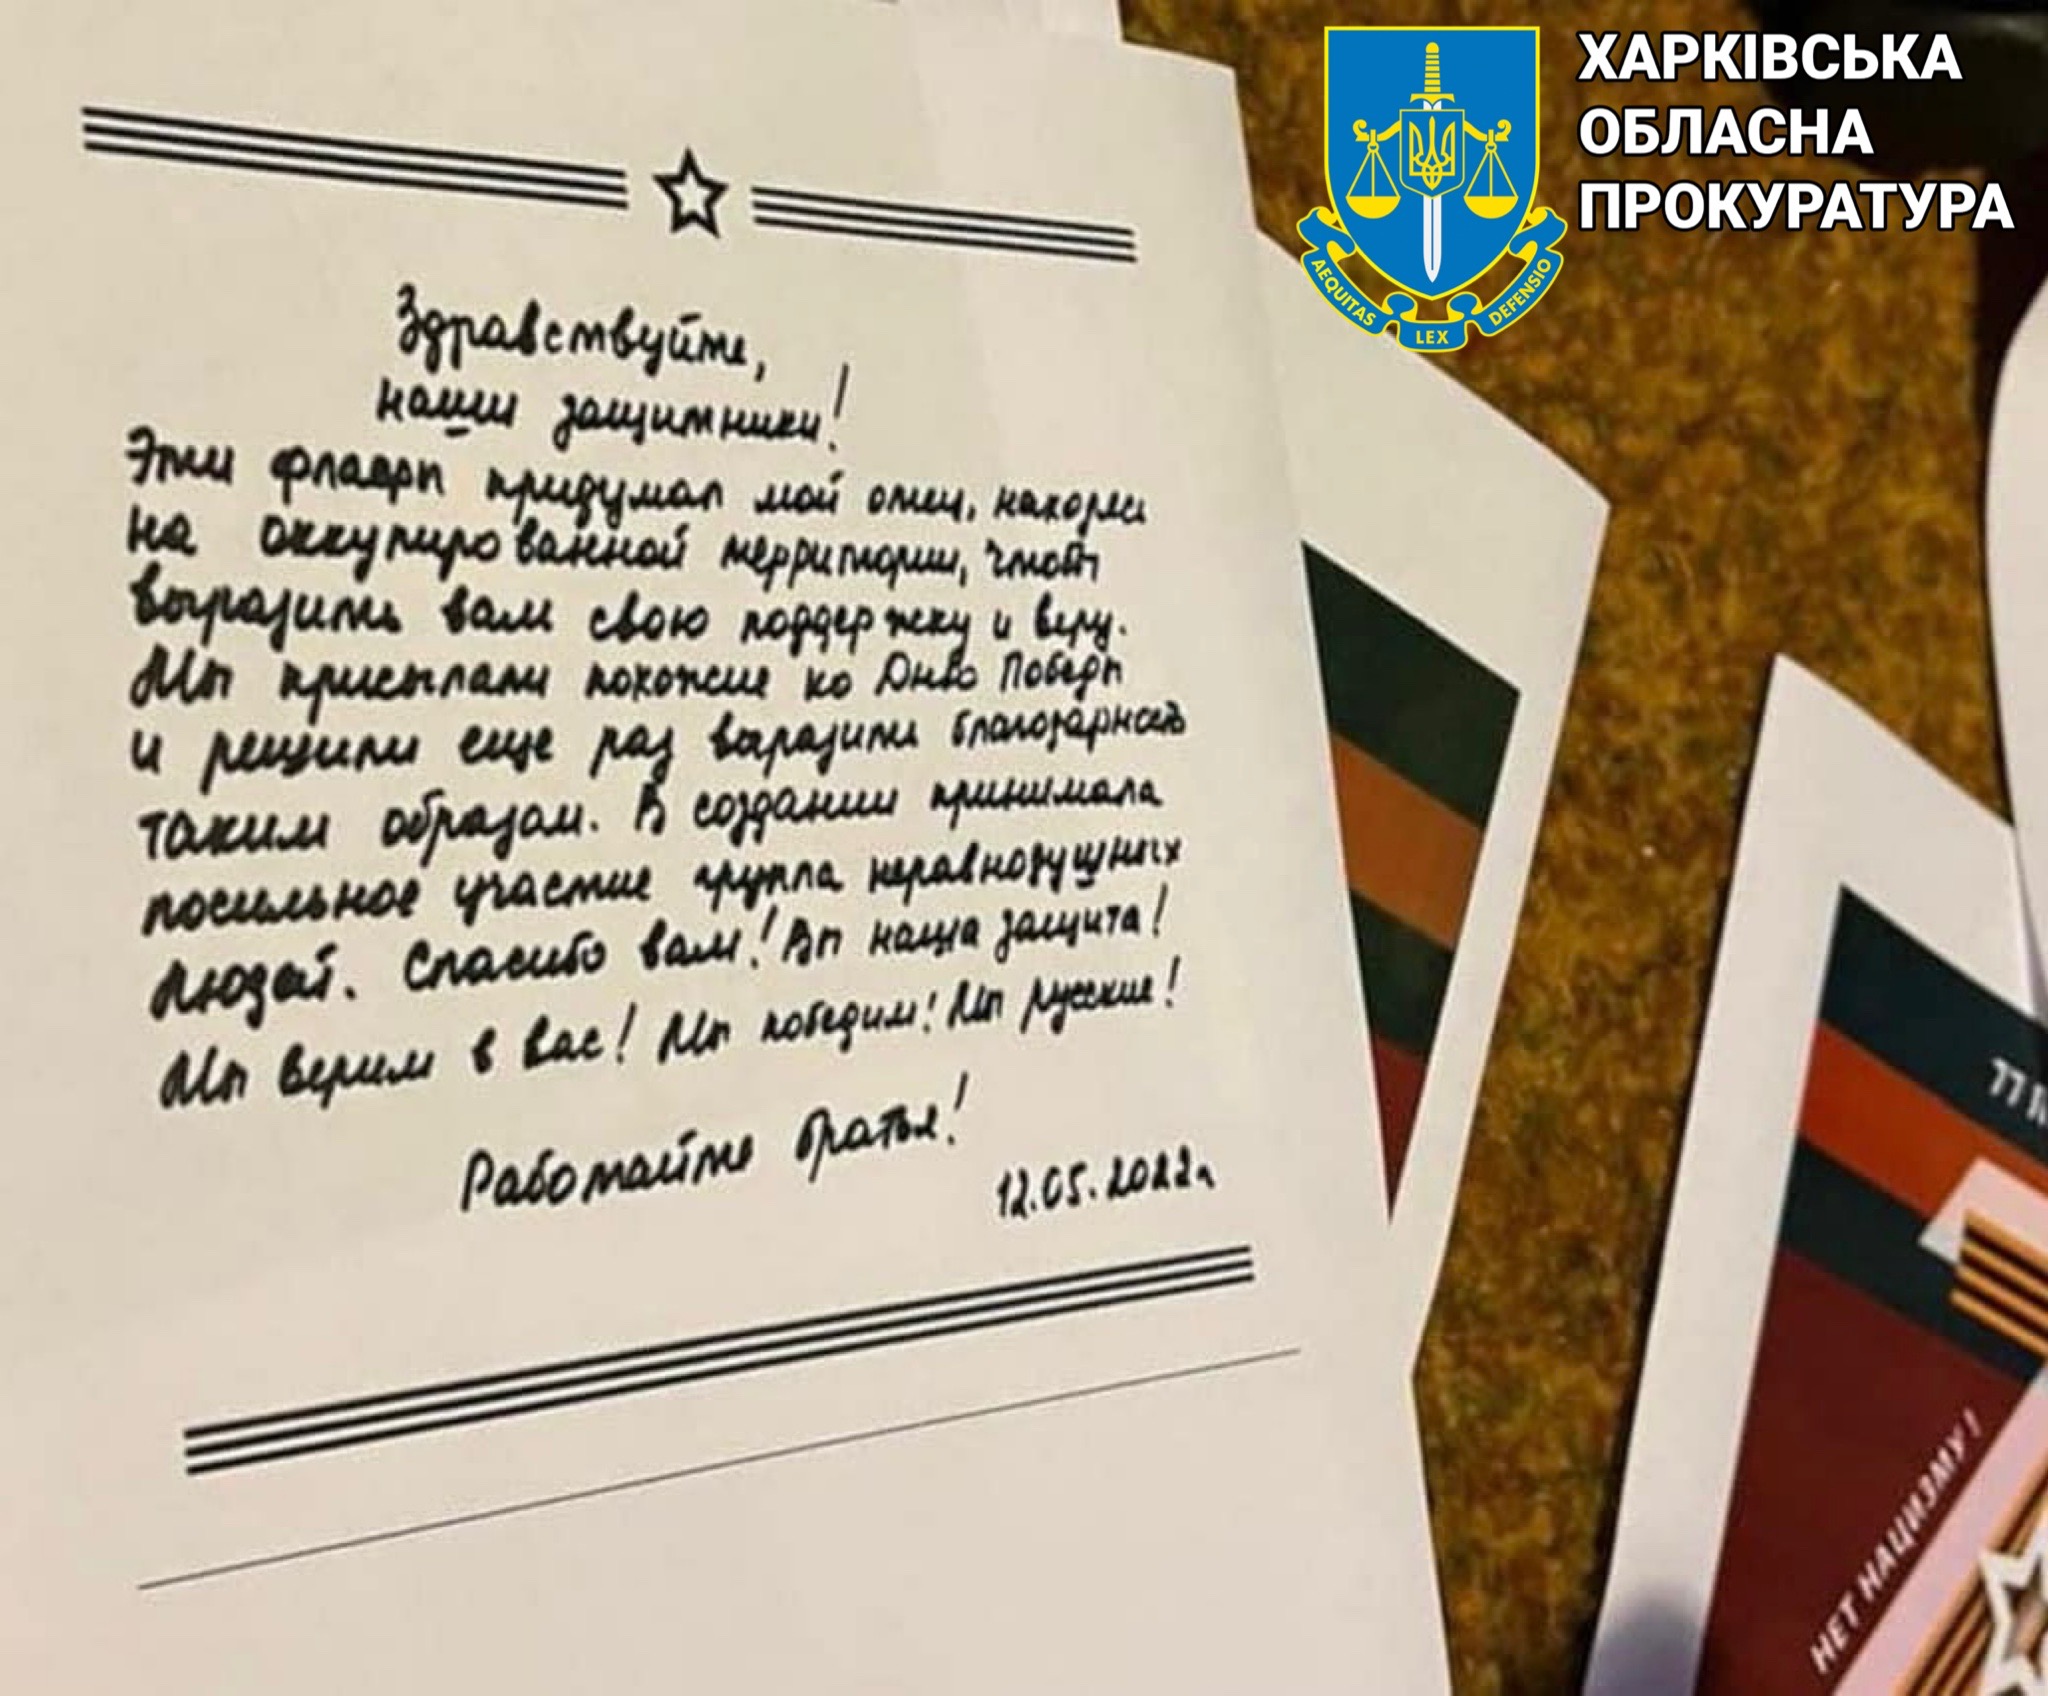 ХАРКІВСЬКА
ОБЛАСНА
ПРОКУРАТУРА
AEQUITAS
LEX
DEFENSIO
Здравствуйте,
наши защитники!
Эти флаеры придумал мой отец, находясь
на оккупированной территории, чтобы
выразить вам свою поддержку и веру.
Мы присылали похожие ко Дню Победы
и решили еще раз выразить благодарность
таким образом. В создании принимала
посильное участие группа неравнодушных
людей. Спасибо вам! Вы наша защита!
Мы верим в вас! Мы победим! Мы русские!
Работайте братья!
12.05.2022г
НЕТ НАЦИЗМУ!